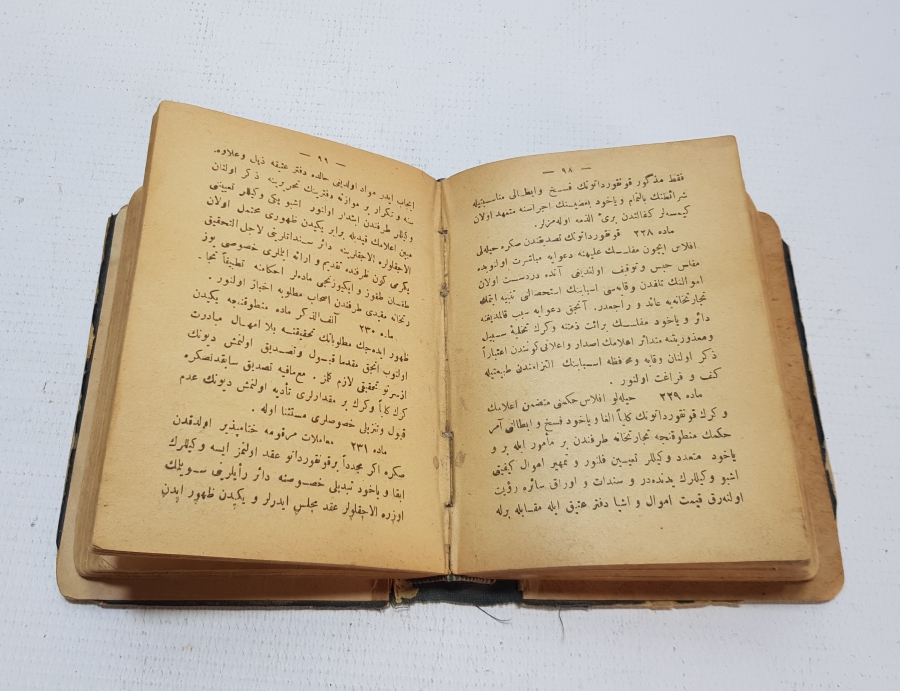 — ٩٨ —
فقط مذكور قونقورداتونك فسخ وابطالى مناسبتيله
شرائطنك بالتمام وياخود بعضيسنك اجراسنه متعهد اولان
كيمسه‌لر كفالتدن برئ الذمه اوله‌مزلر.
ماده ٢٢٨ قونقورداتونك تصديقندن صكره حيله‌لى
افلاس ايچون مفلسك عليهنه دعوايه مباشرت اولنوبده
مفلس حبس وتوقيف اولنديغى آنده دردست اولان
اموالنك تلفدن وقايه‌سى اسبابنك استحصالى تنبيه ايتمك
تجارتخانه‌يه عائد و راجعدر. آنجق دعوايه سبب قالمديغنه
دائر و ياخود مفلسك برائت ذمتنه وكرك تخلية سبيل
ومعذوريتنه متدائر اعلامك اصدار واعلانى كونندن اعتباراً
ذكر اولنان وقايه ومحافظه اسبابنك التزامندن طبيعتيله
كف و فراغت اولنور .
ماده ٢٢٩ حيله‌لو افلاس حكمنى متضمن اعلامك
و كرك قونقورداتونك كلياً الغا وياخود فسخ و ابطالنى آمر
حكمك منطوقنجه تجارتخانه طرفندن بر مأمور ايله بر و
ياخود متعدد وكيللر تعيين قلنور و تمهير اموال كيفيتى
اشبو وكيللرك يدنده‌در و سندات و اوراق سائره رؤيت
اولنه‌رق قيمت اموال و اشيا دفتر عتيق ايله مقابله برله
— ٩٩ —
ايجاب ايدر مواد اولديغى حالده دفتر عتيقه ذيل وعلاوه.
سنه و تكرار بر موازنه دفترينك تحريرينه ذكر اولنان
وكيللر طرفندن ابتدار اولنور اشبو يكى وكيللر تعيينى
مبين اعلامك قيديله برابر يكيدن ظهورى محتمل اولان
الاجقلولره الاجقلرينه دائر سنداتلرينى لاجل التحقيق
يكرمى كون ظرفنده تقديم و ارائه ايتملرى خصوصى يوز
طقسان طقوز و ايكيوزنجى ماده‌لر احكامنه تطبيقاً تجا.
رتخانه مقيدى طرفندن اصحاب مطلوبه اخبار اولنور .
ماده ٢٣٠ آنف‌الذكر ماده منطوقنجه يكيدن
ظهور ايده‌جك مطلوباتك تحقيقنه بلا امهال مبادرت
اولنوب آنجق مقدما قبول وتصديق اولنمش ديونك
ازسرنو تحقيقى لازم كلمز . مع‌مافيه تصديق سابقدنصكره
كرك كلياً وكرك بر مقدارلرى تأديه اولنمش ديونك عدم
قبول وتنزيل خصوصلرى مستثنا اوله .
ماده ٢٣١ معاملات مرقومه ختامپذير اولدقدن
صكره اكر مجدداً برقونقورداتو عقد اولنمز ايسه وكيللرك
ابقا و ياخود تبديلى خصوصنه دائر رأيلرينى سويلمك
اوزره الاجقلولر عقد مجلس ايدرلر و يكيدن ظهور ايدن